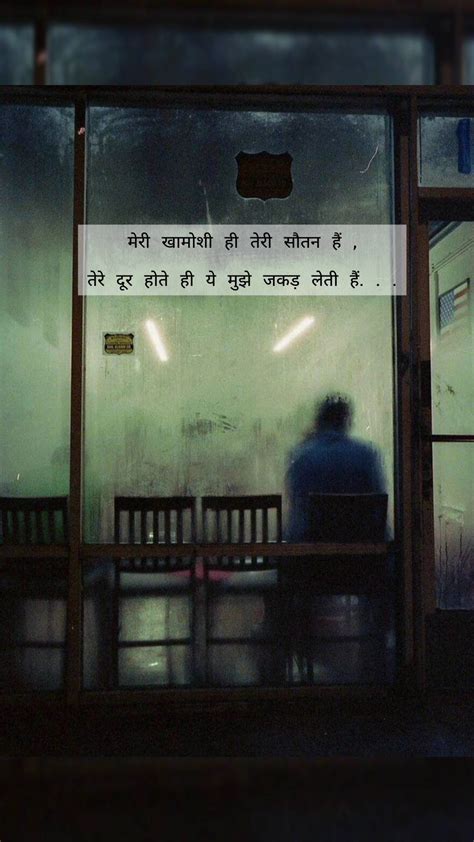 मेरी खामोशी ही तेरी सौतन हैं ,
तेरे दूर होते ही ये मुझे जकड़ लेती हैं. . .